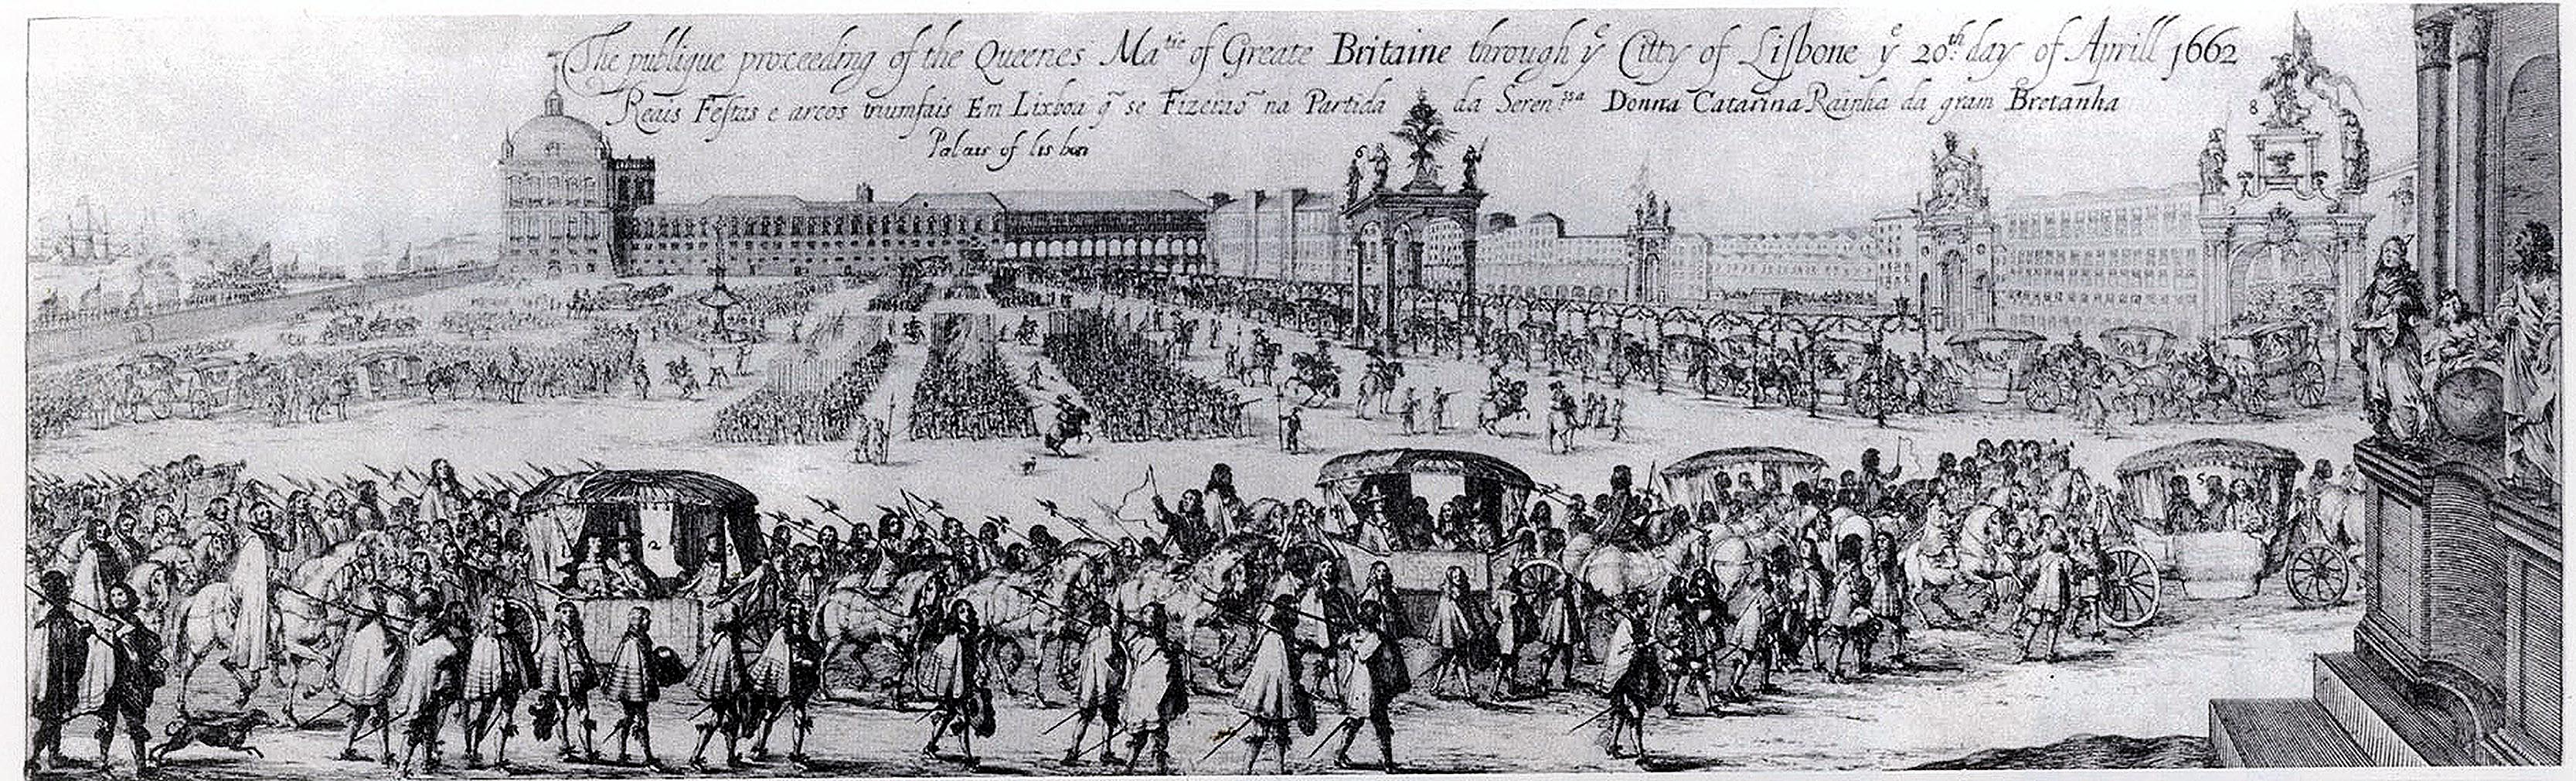 The publique proceeding of the Queenes Ma^tie of Greate Britaine through y^e Citty of Lisbone y^e 20^th day of Aprill 1662
Reais Festas e arcos triumfais Em Lixboa q̃ se Fizeraõ na Partida da Seren^ssa Donna Catarina Rainha da gram Bretanha
Palais of lisbon
6
8
1 2 3
5